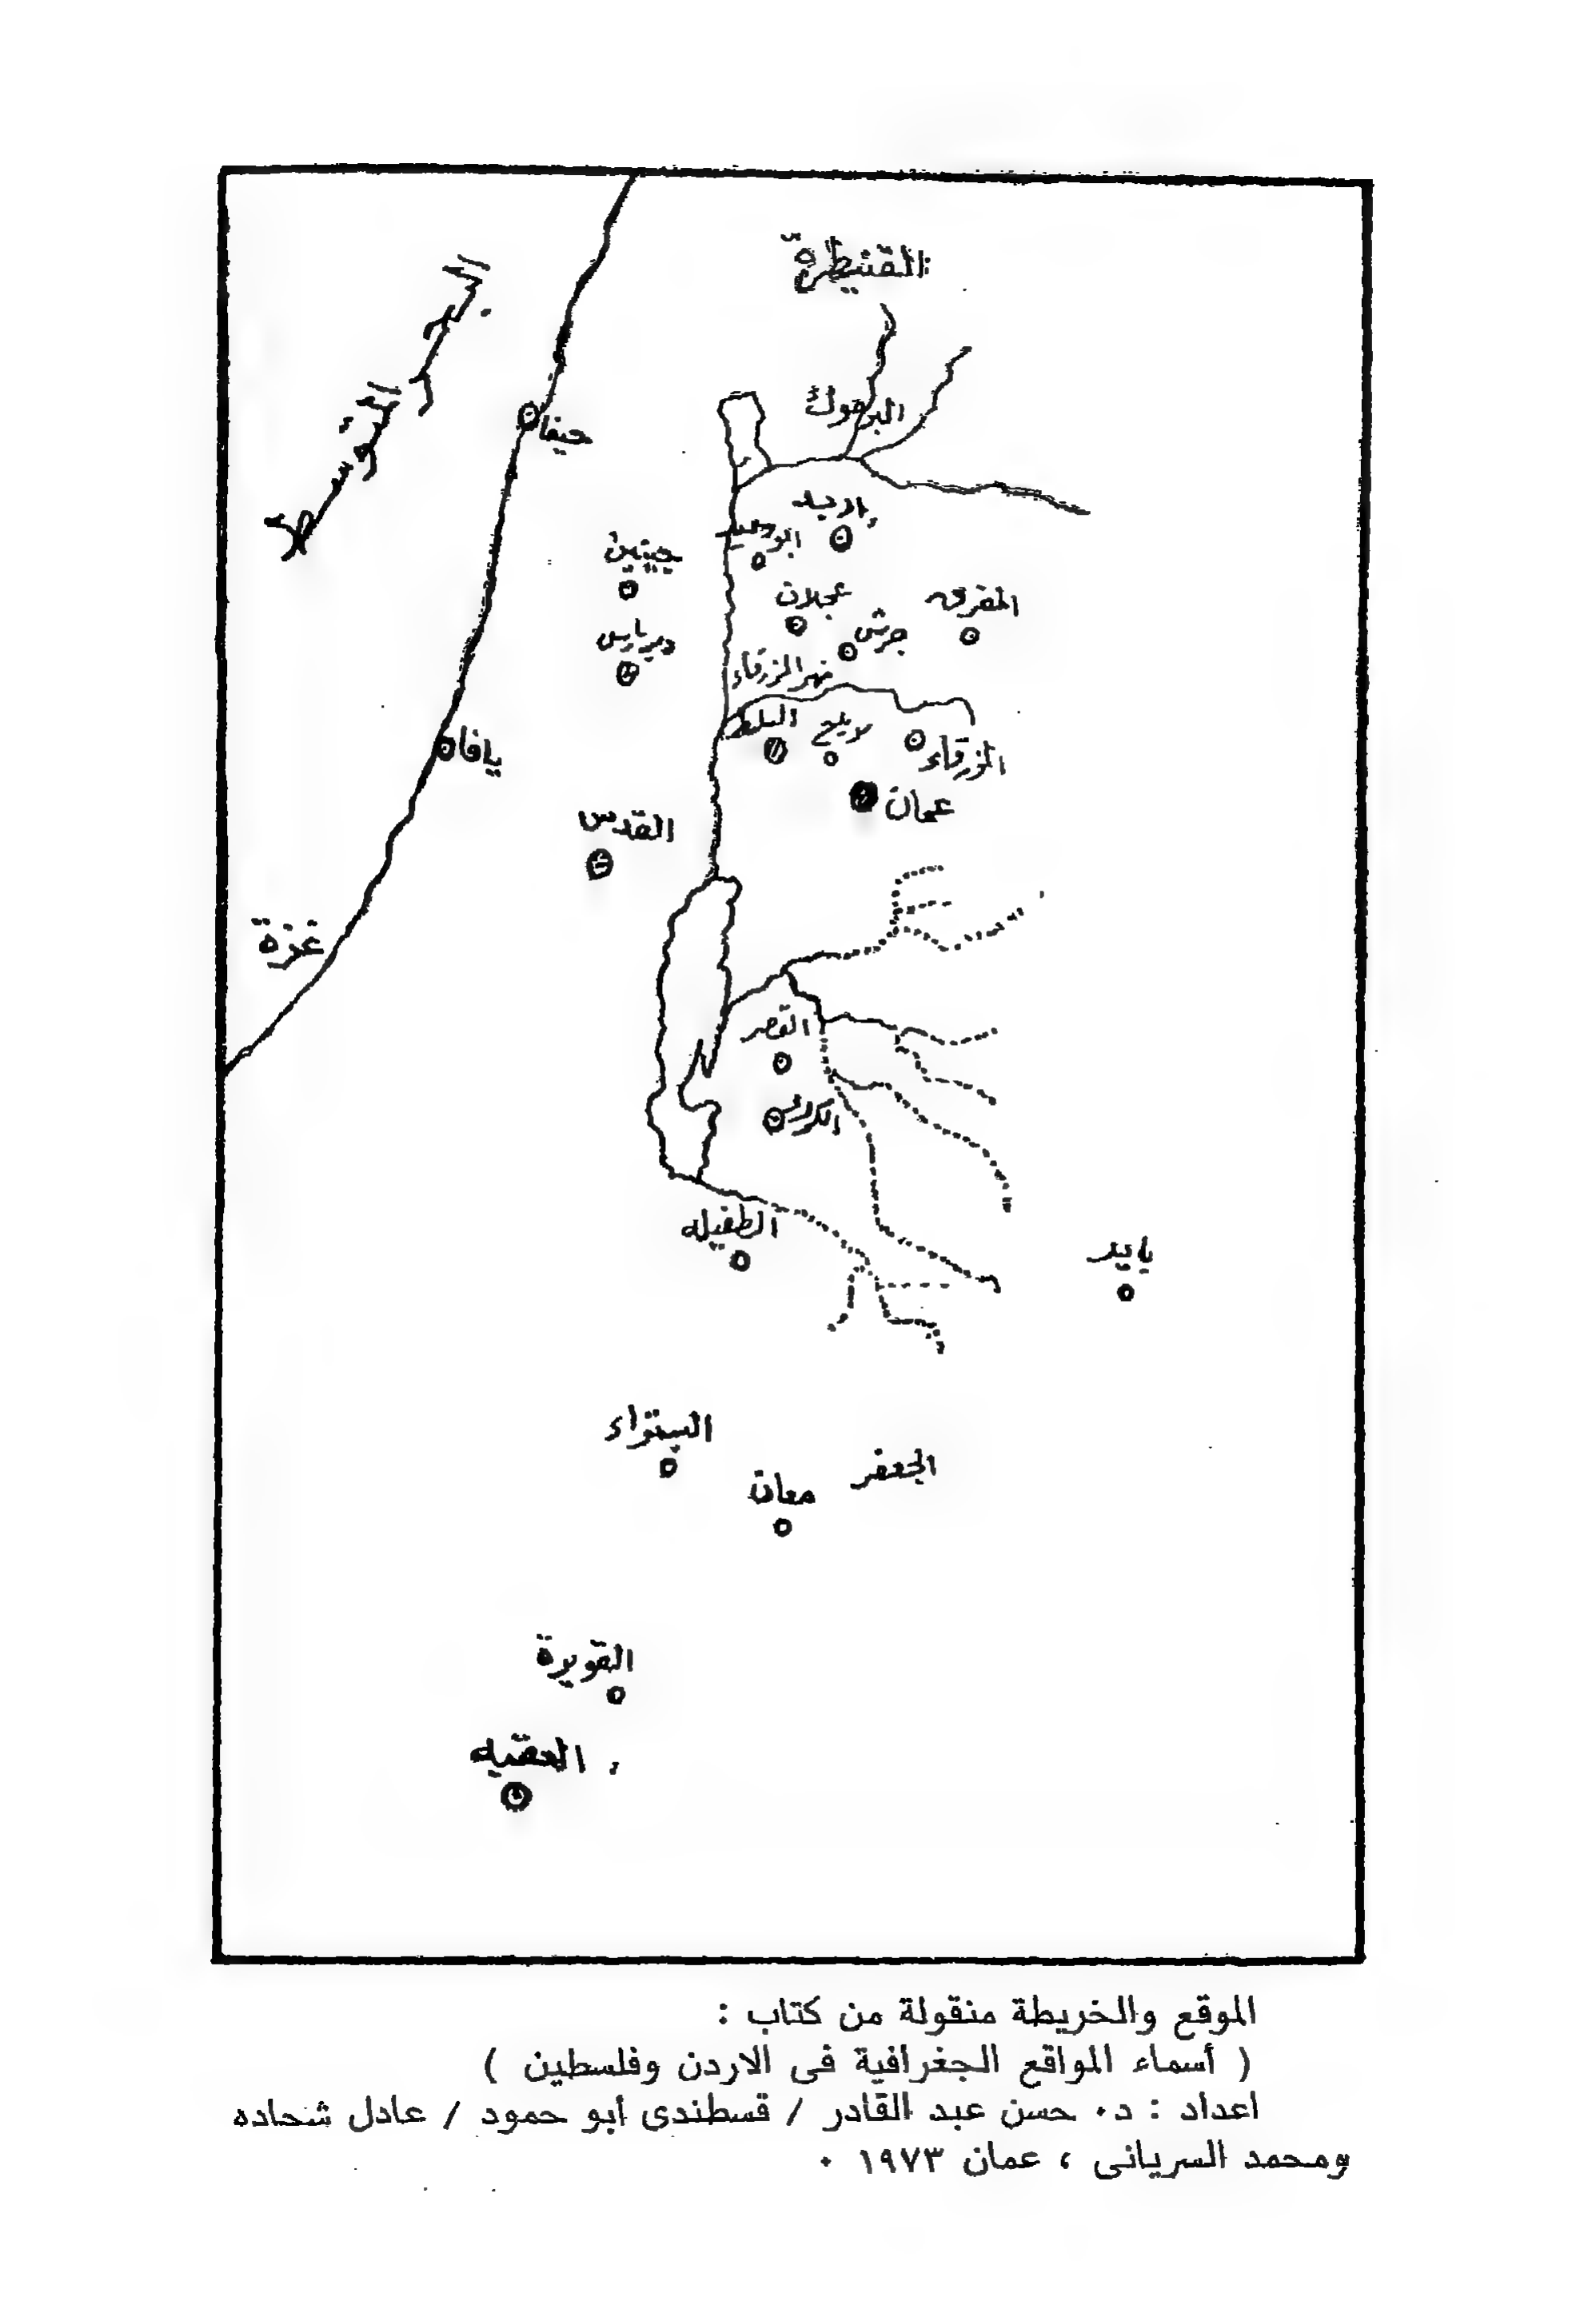 القنيطرة
البحر المتوسط
اليرموك
حيفا
إربد
جينين
عجلون
المفرق
جرش
نهر الزرقاء
السلط
صويلح
الزرقاء
يافا
عمان
القدس
غزة
القصر
الكرك
الطفيله
باير
البتراء
الجفر
معان
القويرة
العقبه
الموقع والخريطة منقولة من كتاب :
( أسماء المواقع الجغرافية فى الاردن وفلسطين )
اعداد : د. حسن عبد القادر / قسطندى أبو حمود / عادل شحاده
ومحمد السريانى ، عمان ١٩٧٣ .